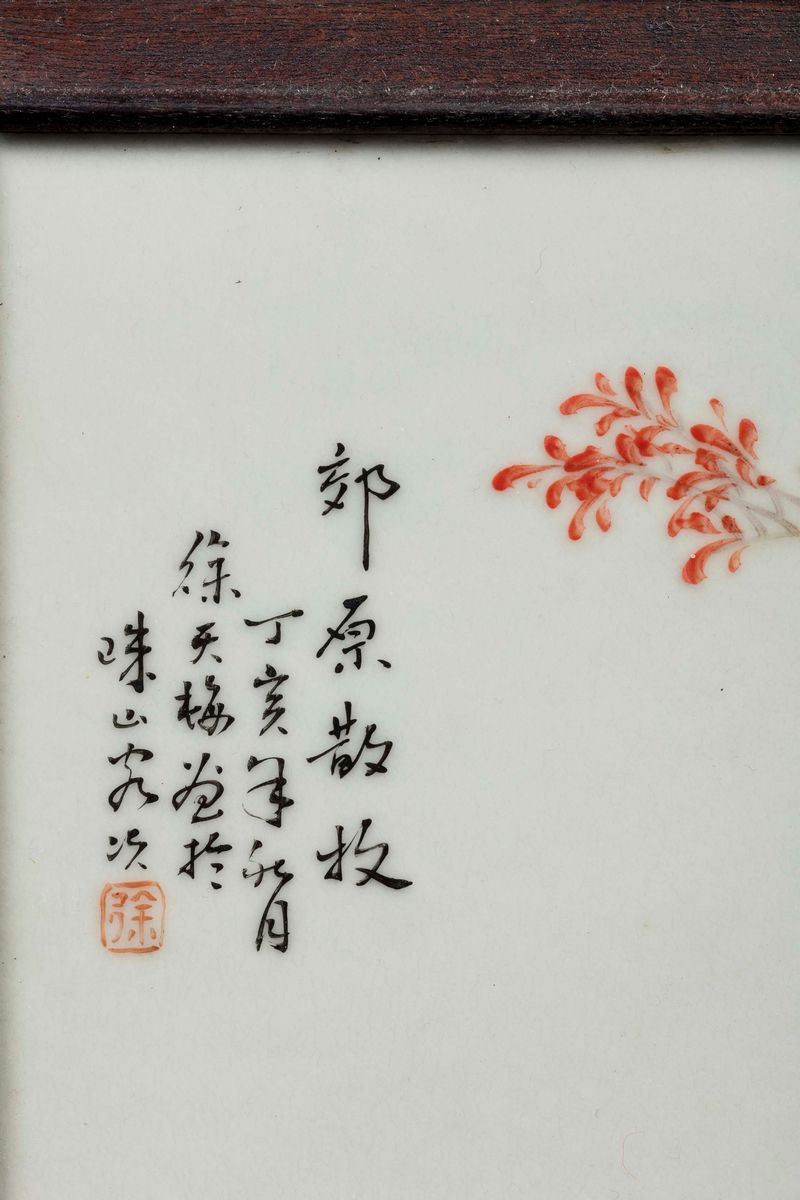 郊原散牧
丁亥年秋月
徐天梅画於
珠山客次
徐